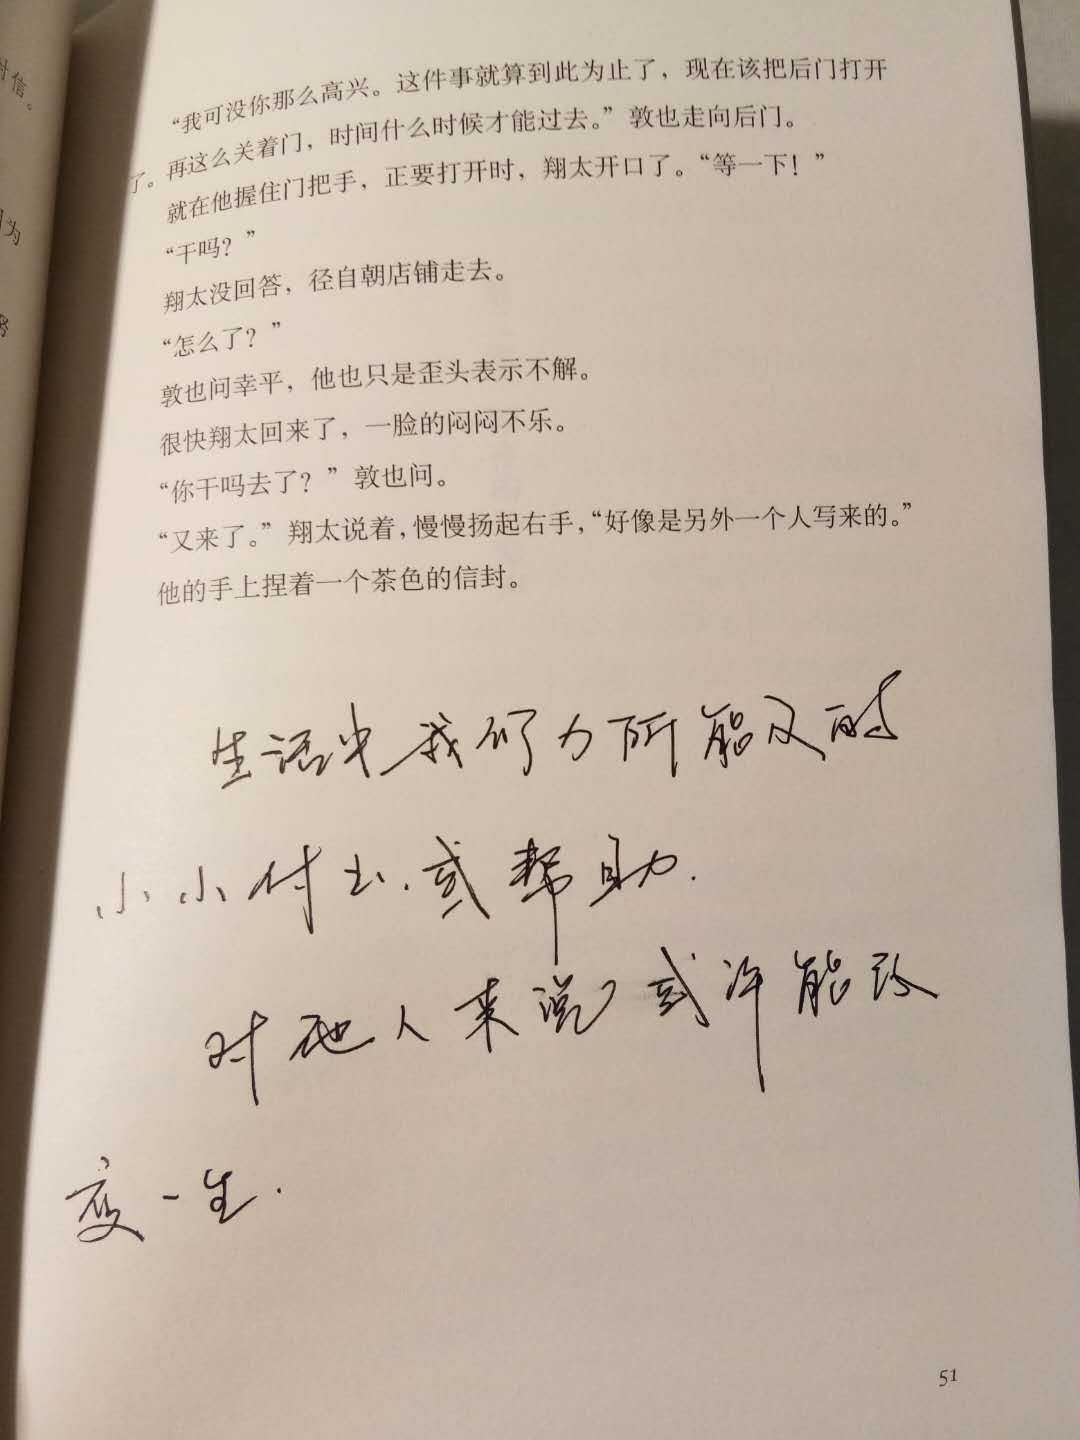 “我可没你那么高兴。这件事就算到此为止了，现在该把后门打开
了。再这么关着门，时间什么时候才能过去。”敦也走向后门。
就在他握住门把手，正要打开时，翔太开口了。“等一下！”
“干吗？”
翔太没回答，径自朝店铺走去。
“怎么了？”
敦也问幸平，他也只是歪头表示不解。
很快翔太回来了，一脸的闷闷不乐。
“你干吗去了？”敦也问。
“又来了。”翔太说着，慢慢扬起右手，“好像是另外一个人写来的。”
他的手上捏着一个茶色的信封。
生活中我们力所能及的
小小付出.或帮助.
对他人来说或许能改
变一生.
51
付信。
为